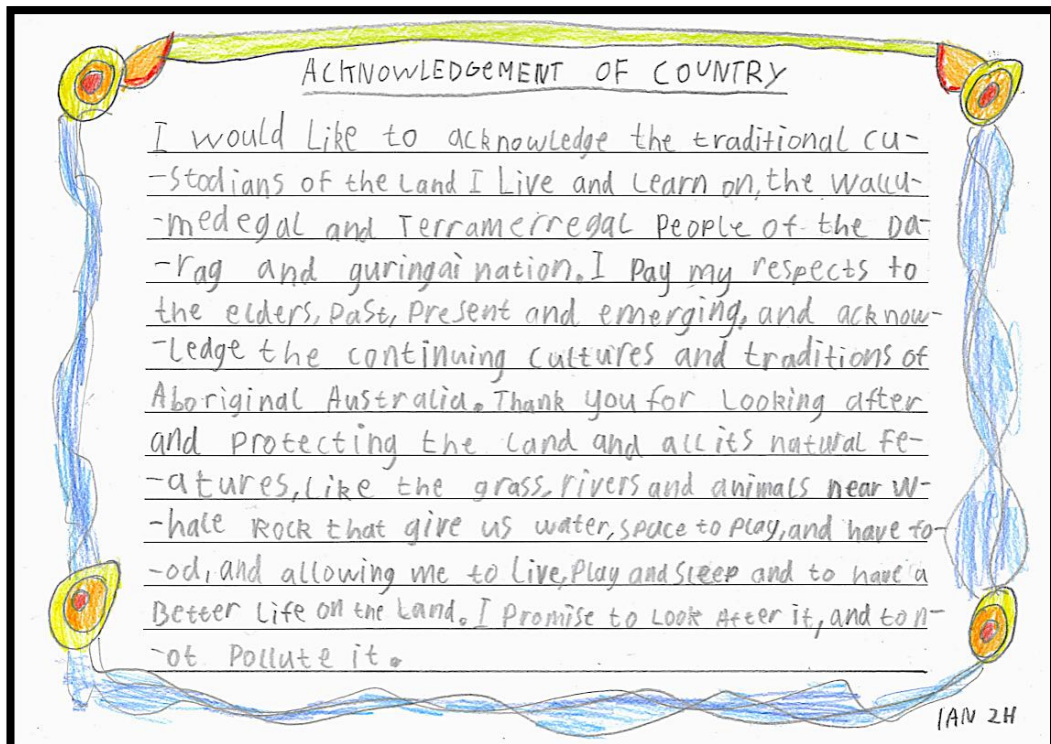 ACKNOWLEDGEMENT OF COUNTRY
I would Like to acknowledge the traditional cu-
-stodians of the Land I Live and Learn on, the Wallu-
-medegal and Terramerregal People of the Da-
-rag and guringai nation. I Pay my respects to
the elders, Past, Present and emerging, and acknow-
-Ledge the continuing cultures and traditions of
Aboriginal Australia. Thank you for Looking after
and Protecting the Land and all its natural Fe-
-atures, Like the grass, rivers and animals near W-
-hale Rock that give us water, space to Play, and have fo-
-od, and allowing me to Live, Play and Sleep and to have a
Better Life on the Land. I Promise to Look After it, and to n-
-ot Pollute it.
IAN 2H